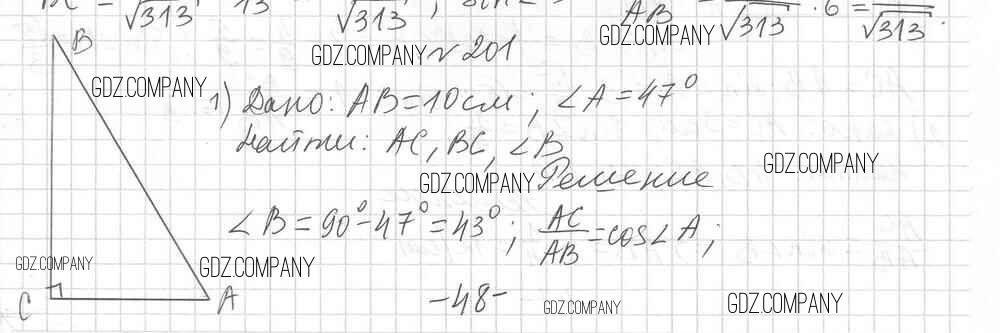 √313 13 √313 ; AB √313 · 6 = √313 .
GDZ.COMPANY № 201 GDZ.COMPANY
B
GDZ.COMPANY 1) Дано: AB = 10 см; ∠A = 47°
Найти: AC, BC, ∠B
GDZ.COMPANY Решение GDZ.COMPANY
∠B = 90° - 47° = 43°; AC/AB = cos∠A;
GDZ.COMPANY GDZ.COMPANY
C A -48- GDZ.COMPANY GDZ.COMPANY